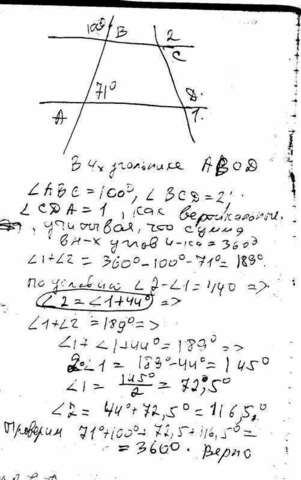 100° B 2
C
71° D
A 1
В 4х угольнике ABCD
∠ABC = 100°, ∠BCD = 2.
∠CDA = 1, как вертикальные.
учитывая, что сумма
вн-х углов 4-ка = 360°
∠1+∠2 = 360°-100°-71° = 189°.
по условию ∠2-∠1 = 44° =>
∠2 = ∠1+44° =>
∠1+∠2 = 189° =>
∠1+∠1+44° = 189° =>
2∠1 = 189°-44° = 145°
∠1 = 145°/2 = 72,5°
∠2 = 44°+72,5° = 116,5°
Проверим 71°+100°+72,5+116,5° =
= 360°. Верно